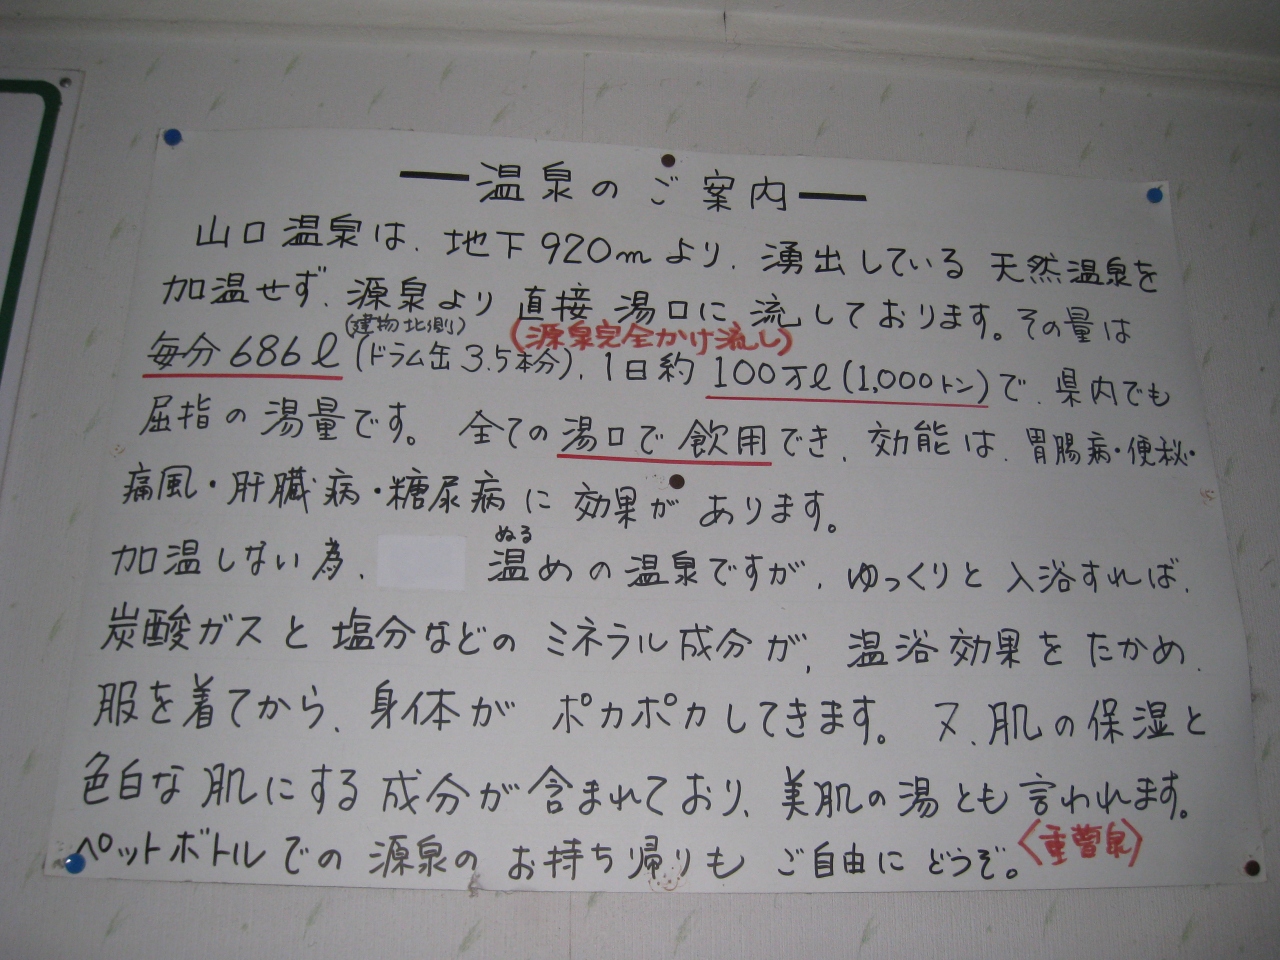 ━温泉のご案内━
山口温泉は、地下920mより、湧出している天然温泉を
加温せず、源泉より直接湯口に流しております。その量は
(建物北側) (源泉完全かけ流し)
毎分686ℓ(ドラム缶3.5本分)、1日約100万ℓ(1,000トン)で、県内でも
屈指の湯量です。全ての湯口で飲用でき、効能は、胃腸病・便秘・
痛風・肝臓病・糖尿病に効果があります。
ぬる
加温しない為、温めの温泉ですが、ゆっくりと入浴すれば、
炭酸ガスと塩分などのミネラル成分が、温浴効果をたかめ、
服を着てから、身体がポカポカしてきます。又、肌の保湿と
色白な肌にする成分が含まれており、美肌の湯とも言われます。
〈重曹泉〉
ペットボトルでの源泉のお持ち帰りもご自由にどうぞ。